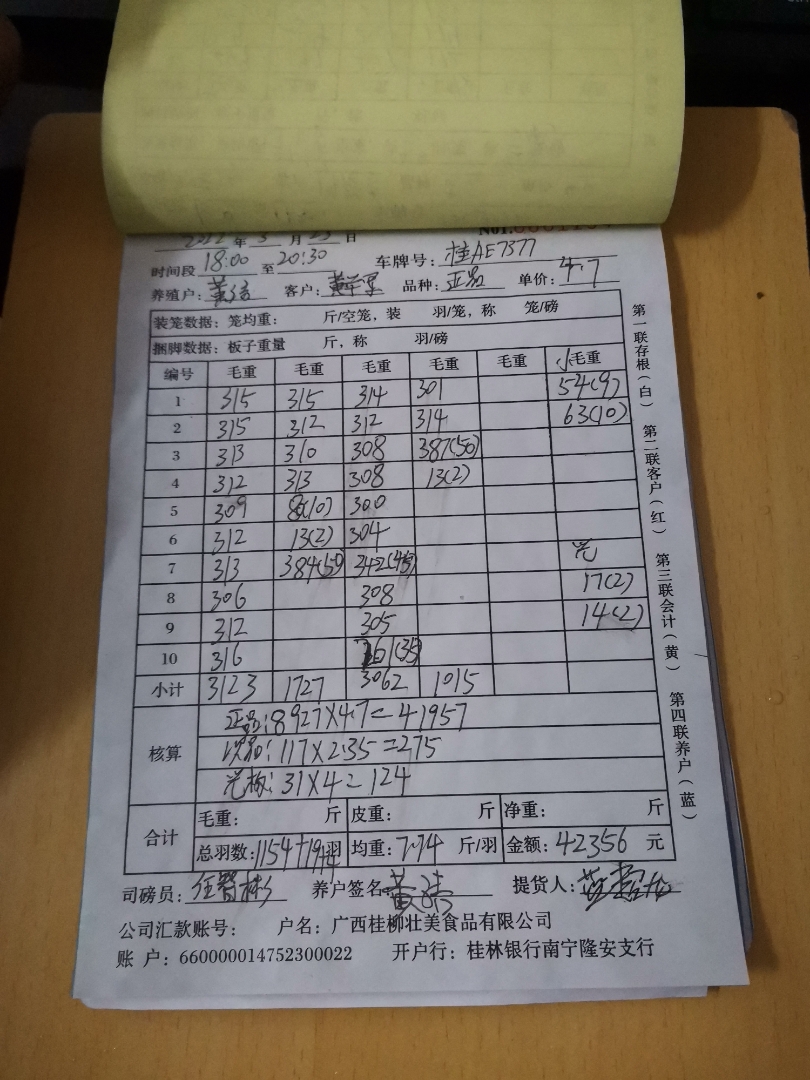 2022 年 3 月 23 日 No1.
时间段 18:00 至 20:30 车牌号: 桂AE7377
养殖户: 黄 客户: 黄 品种: 正品 单价: 4.7
装笼数据: 笼均重: 斤/空笼, 装 羽/笼, 称 笼/磅
捆脚数据: 板子重量 斤, 称 羽/磅
编号 毛重 毛重 毛重 毛重 毛重 小毛重
1 315 315 314 301 54(9)
2 315 312 312 314 63(10)
3 313 310 308 387(50)
4 312 313 308 13(2)
5 309 80(10) 300
6 312 13(2) 304
7 313 384(50) 342(45)
8 306 308 17(2)
9 312 305 14(2)
10 316 261(35)
小计 3123 1727 3062 1015
核算
正品: 8927×4.7=41957
次品: 117×2.35=275
光板: 31×4=124
合计
毛重: 斤 皮重: 斤 净重: 斤
总羽数: 1154+19+4 羽 均重: 7.74 斤/羽 金额: 42356 元
司磅员: 养户签名: 黄 提货人:
公司汇款账号: 户名: 广西桂柳壮美食品有限公司
账 户: 660000014752300022 开户行: 桂林银行南宁隆安支行
第一联存根(白) 第二联客户(红) 第三联会计(黄) 第四联养户(蓝)